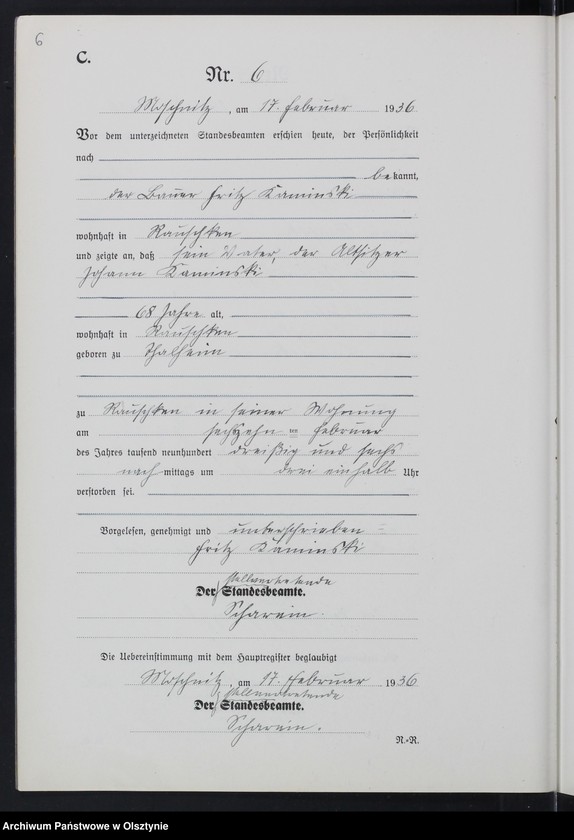 6
C.
Nr. 6
Moschnitz, am 17. Februar 1936
Vor dem unterzeichneten Standesbeamten erschien heute, der Persönlichkeit
nach
bekannt,
der Bauer Fritz Kaminski
wohnhaft in Rauschken
und zeigte an, daß sein Vater, der Altsitzer
Johann Kaminski
68 Jahre alt,
wohnhaft in Rauschken
geboren zu Thalheim
zu Rauschken in seiner Wohnung
am sechzehn ten Februar
des Jahres tausend neunhundert dreißig und sechs
nach mittags um drei einhalb Uhr
verstorben sei.
Vorgelesen, genehmigt und unterschrieben
Fritz Kaminski
stellvertretende
Der Standesbeamte.
Scharein.
Die Uebereinstimmung mit dem Hauptregister beglaubigt
Moschnitz, am 17. Februar 1936
stellvertretende
Der Standesbeamte.
Scharein.
R.-R.
Archiwum Państwowe w Olsztynie